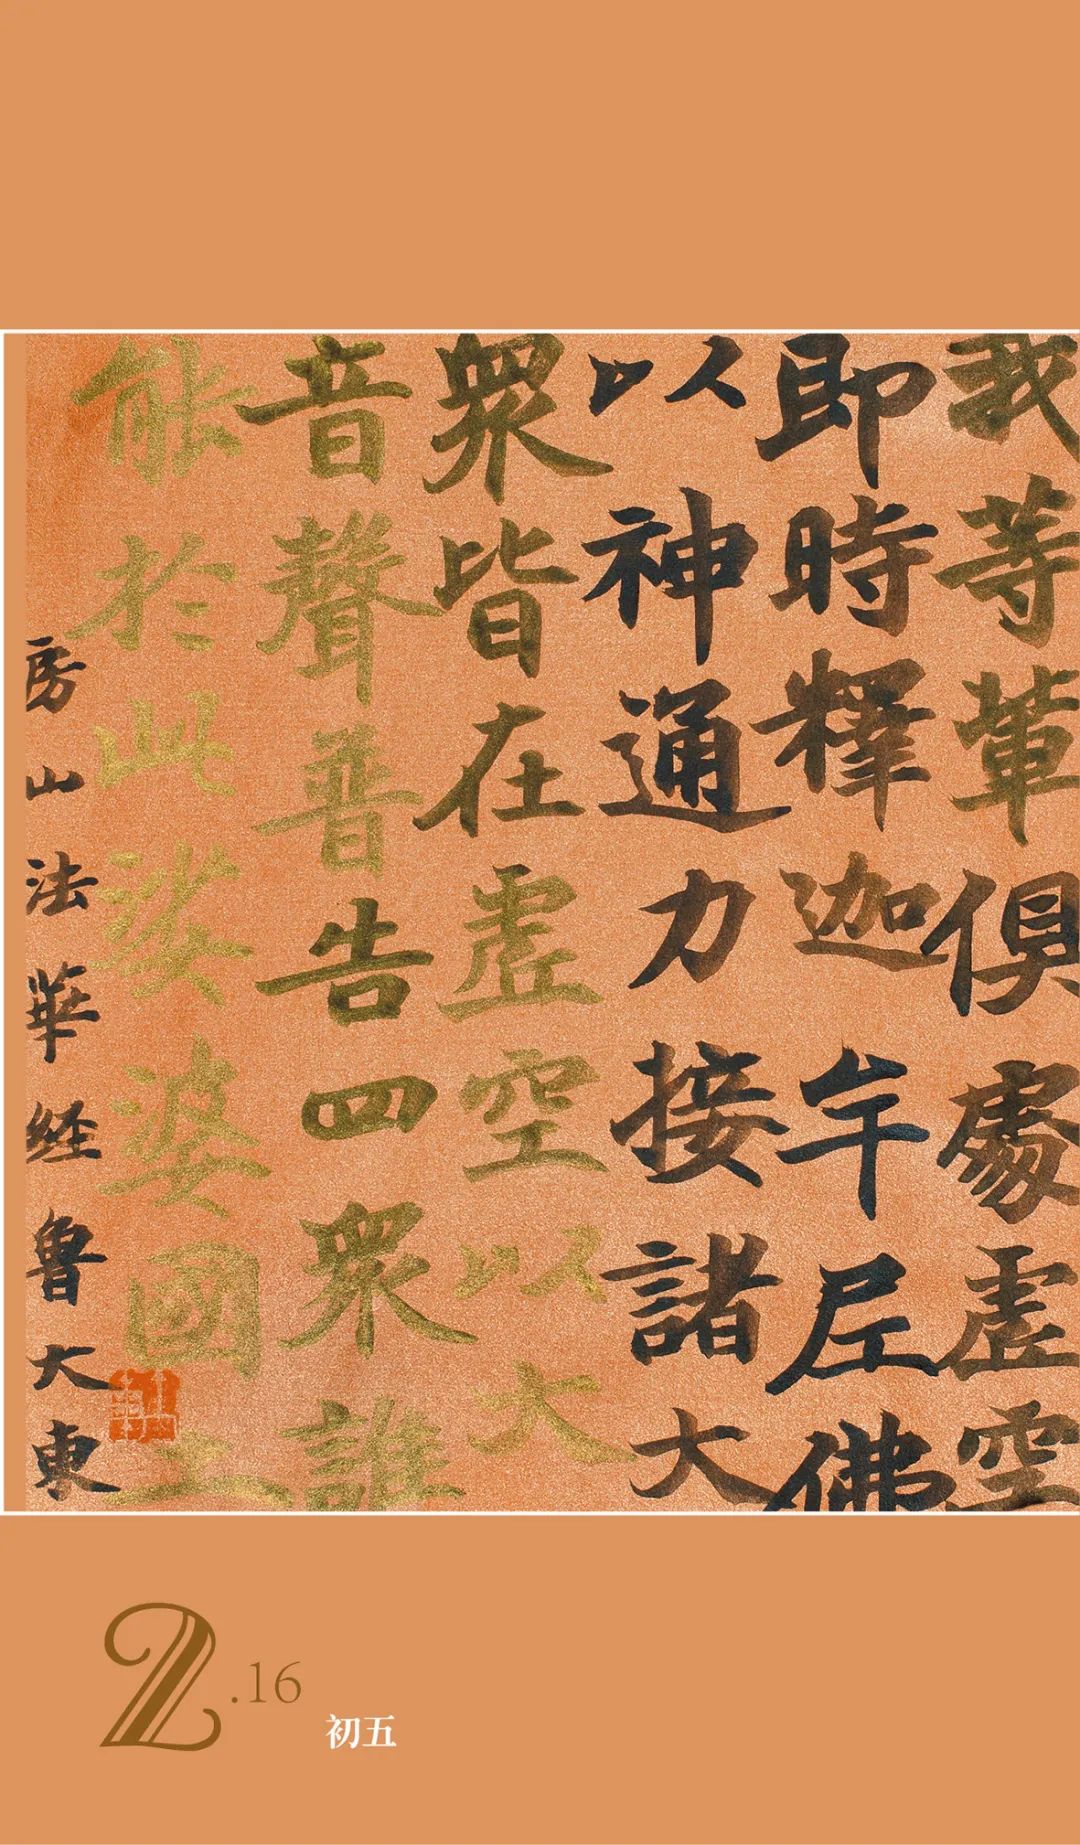 我等輩俱處虛空
即時釋迦牟尼佛
以神通力接諸大
眾皆在虛空以大
音聲普告四眾誰
能於此娑婆國土
房山法華经魯大東
2.16
初五